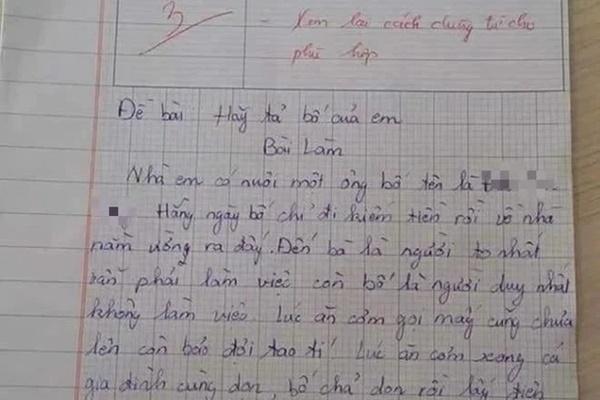 3
- Xem lại cách dùng từ cho
phù hợp
Đề bài Hãy tả bố của em
Bài Làm
Nhà em có nuôi một ông bố tên là
Hằng ngày bố chỉ đi kiếm tiền rồi về nhà
nằm ưỡng ra đấy. Đến bà là người to nhất
vẫn phải làm việc còn bố là người duy nhất
không làm việc. Lúc ăn cơm gọi mấy cũng chưa
lên còn bảo đợi tao tí. Lúc ăn cơm xong cả
gia đình cùng dọn, bố chả dọn rồi lấy tiền